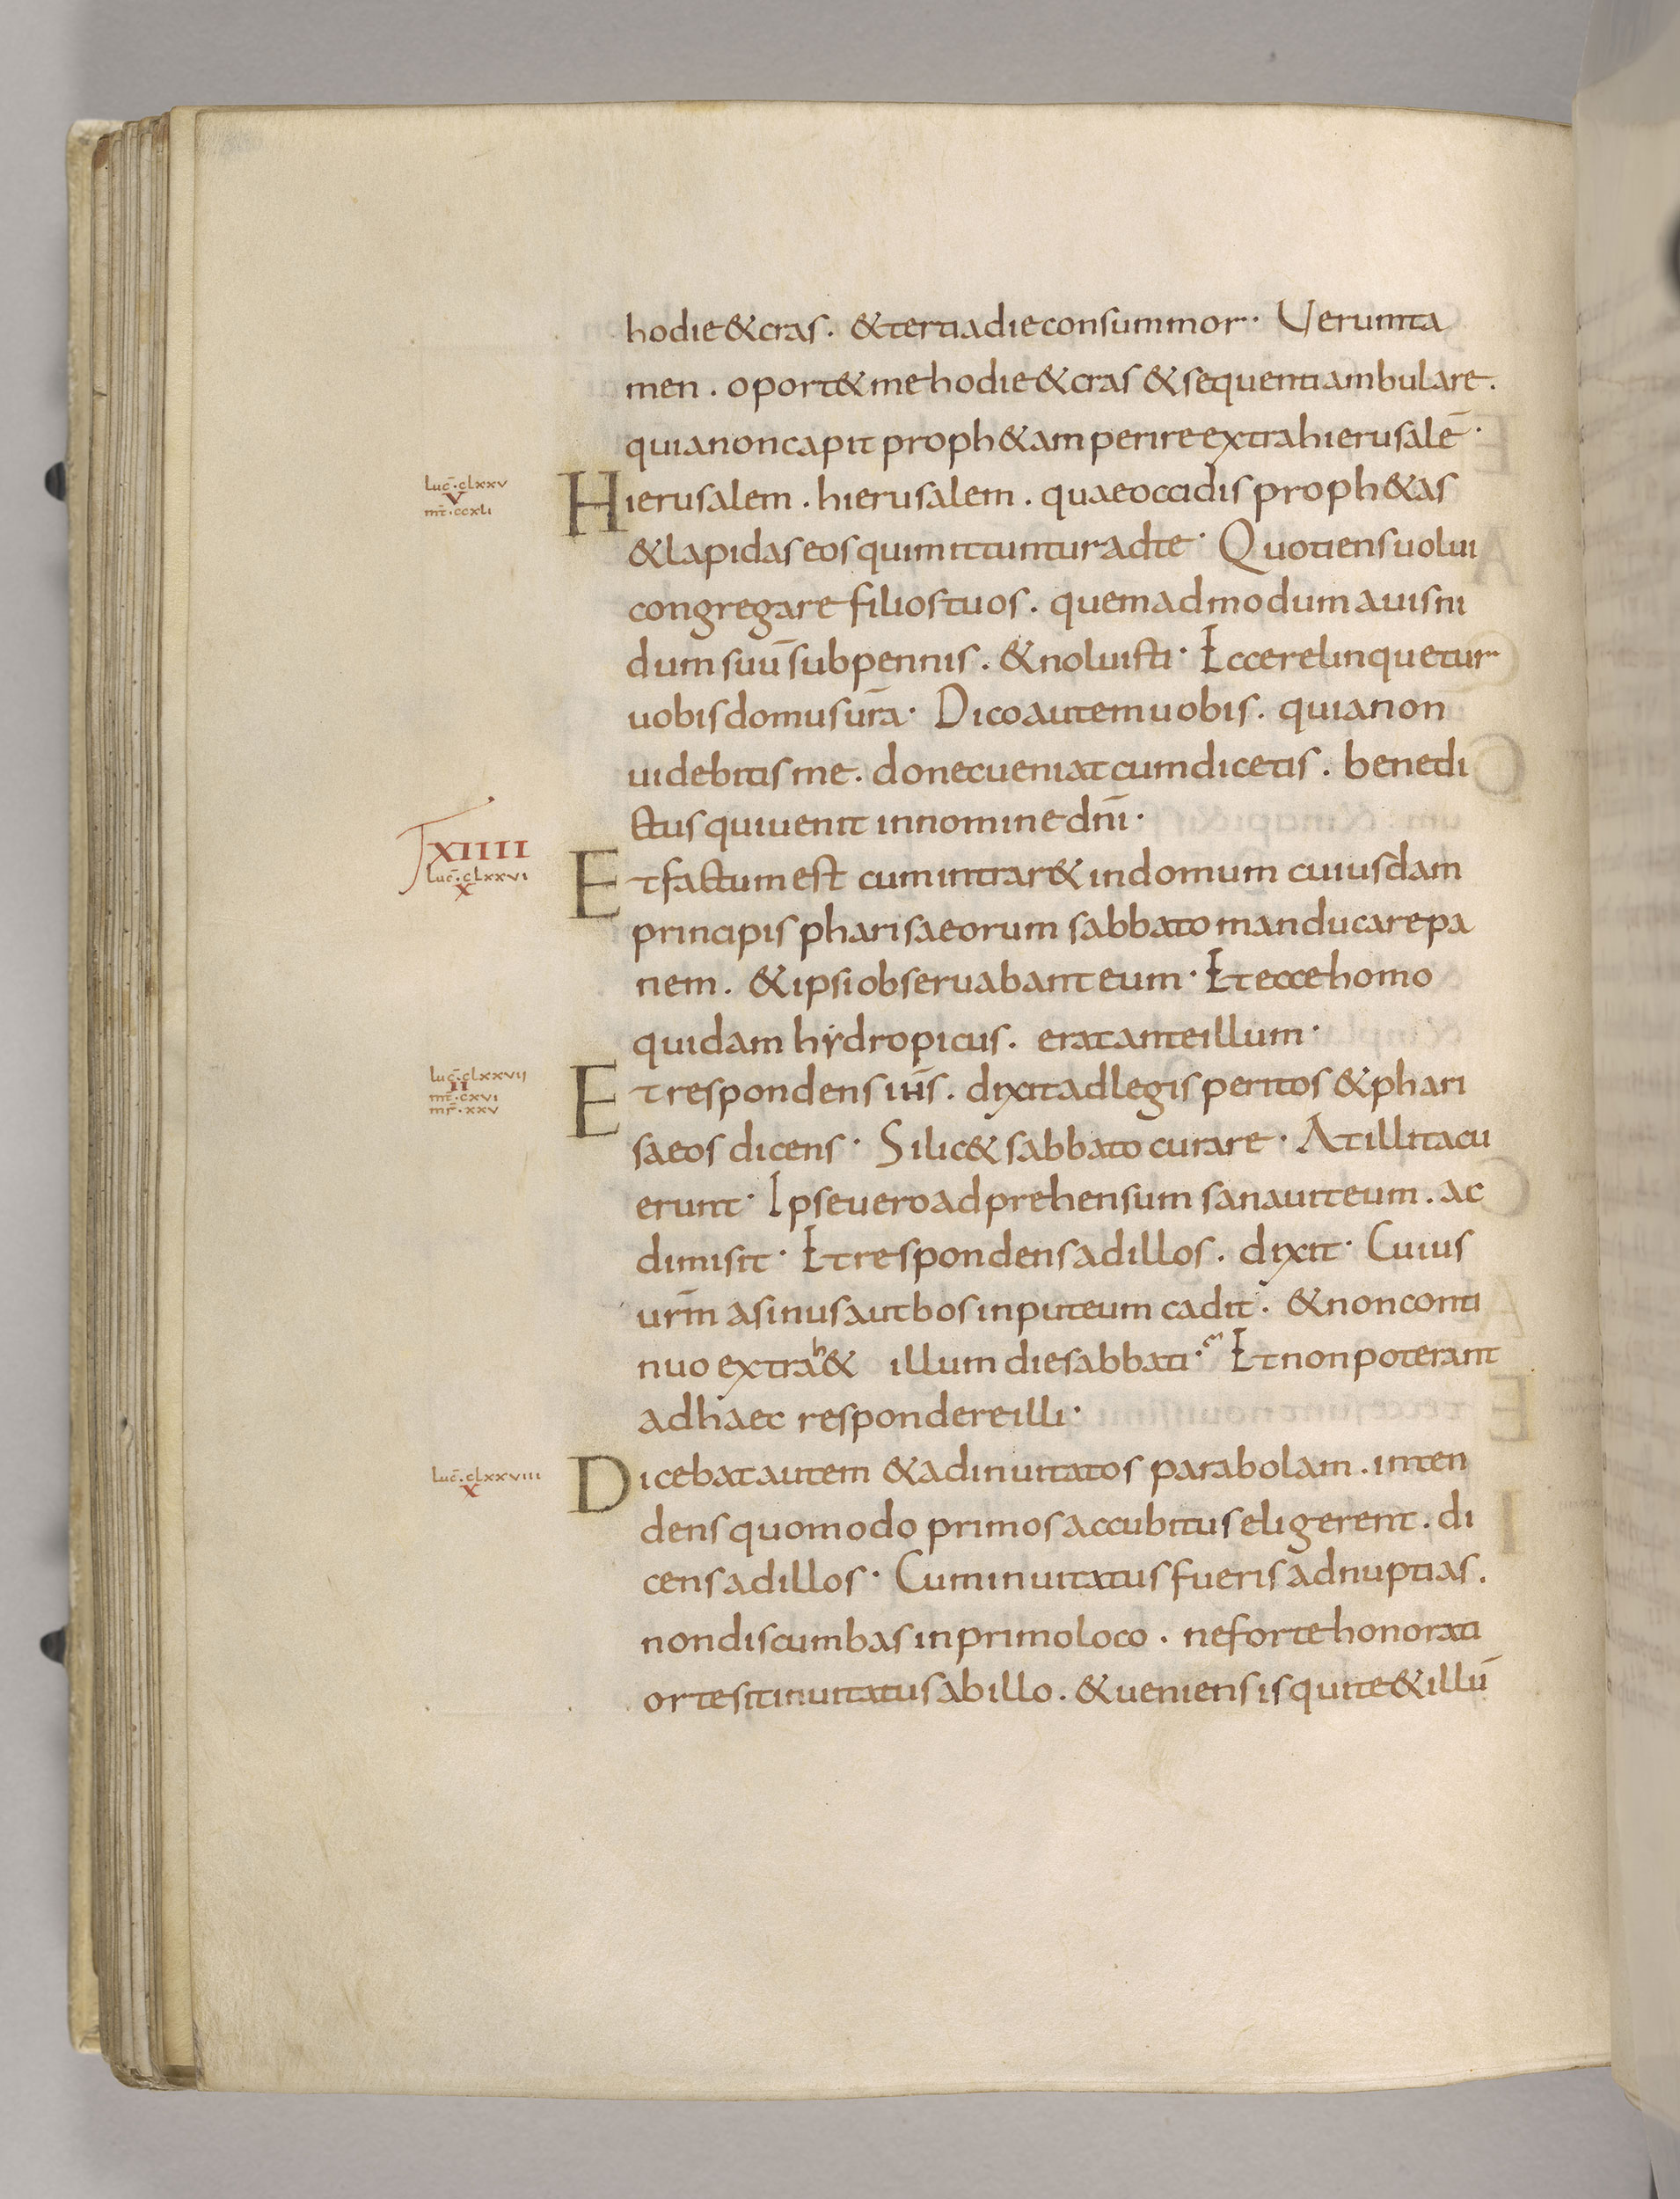 hodie & cras. & tertia die consummor· Uerumta
men. oport& me hodie & cras & sequenti ambulare.
quia non capit proph&am perire extra hierusalē·
luc̄·clxxv
V
mt̄·ccxli
Hierusalem. hierusalem. quae occidis proph&as
& lapidas eos qui mittuntur ad te· Quotiens uolui
congregare filios tuos. quemadmodum auis ni
dum suū sub pennis. & noluisti· Ecce relinquetur
uobis domus ur̄a· Dico autem uobis. quia non
uidebitis me. donec ueniat cum dicetis. benedi
ctus qui uenit in nomine dn̄i·
XIIII
luc̄·clxxvi
X
Et factum est cum intrar& in domum cuiusdam
principis pharisaeorum sabbato manducare pa
nem. & ipsi obseruabant eum· Et ecce homo
quidam hẏdropicus. erat ante illum·
luc̄·clxxvij
II
mt̄·cxvi
mr̄·xxv
Et respondens ih̄s. dixit ad legis peritos & phari
saeos dicens· Si lic& sabbato curare· At illi tacu
erunt· Ipse uero adprehensum sanauit eum. ac
dimisit· Et respondens ad illos. dixit· Cuius
ur̄m asinus aut bos in puteum cadit· & non conti
nuo extrah& illum die sabbati· Et non poterant
ad haec respondere illi·
luc̄·clxxviii
X
Dicebat autem & ad inuitatos parabolam. inten
dens quomodo primos accubitus eligerent. di
cens ad illos· Cum inuitatus fueris ad nuptias.
non discumbas in primo loco. ne forte honorati
or te sit inuitatus ab illo. & ueniens is qui te & illū